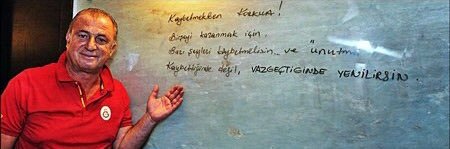 Kaybetmekten KORKMA!
Birşeyi kazanmak için
Bazı şeyleri kaybetmelisin.. ve Unutma
Kaybettiğinde değil, VAZGEÇTİGİNDE YENİLİRSİN.